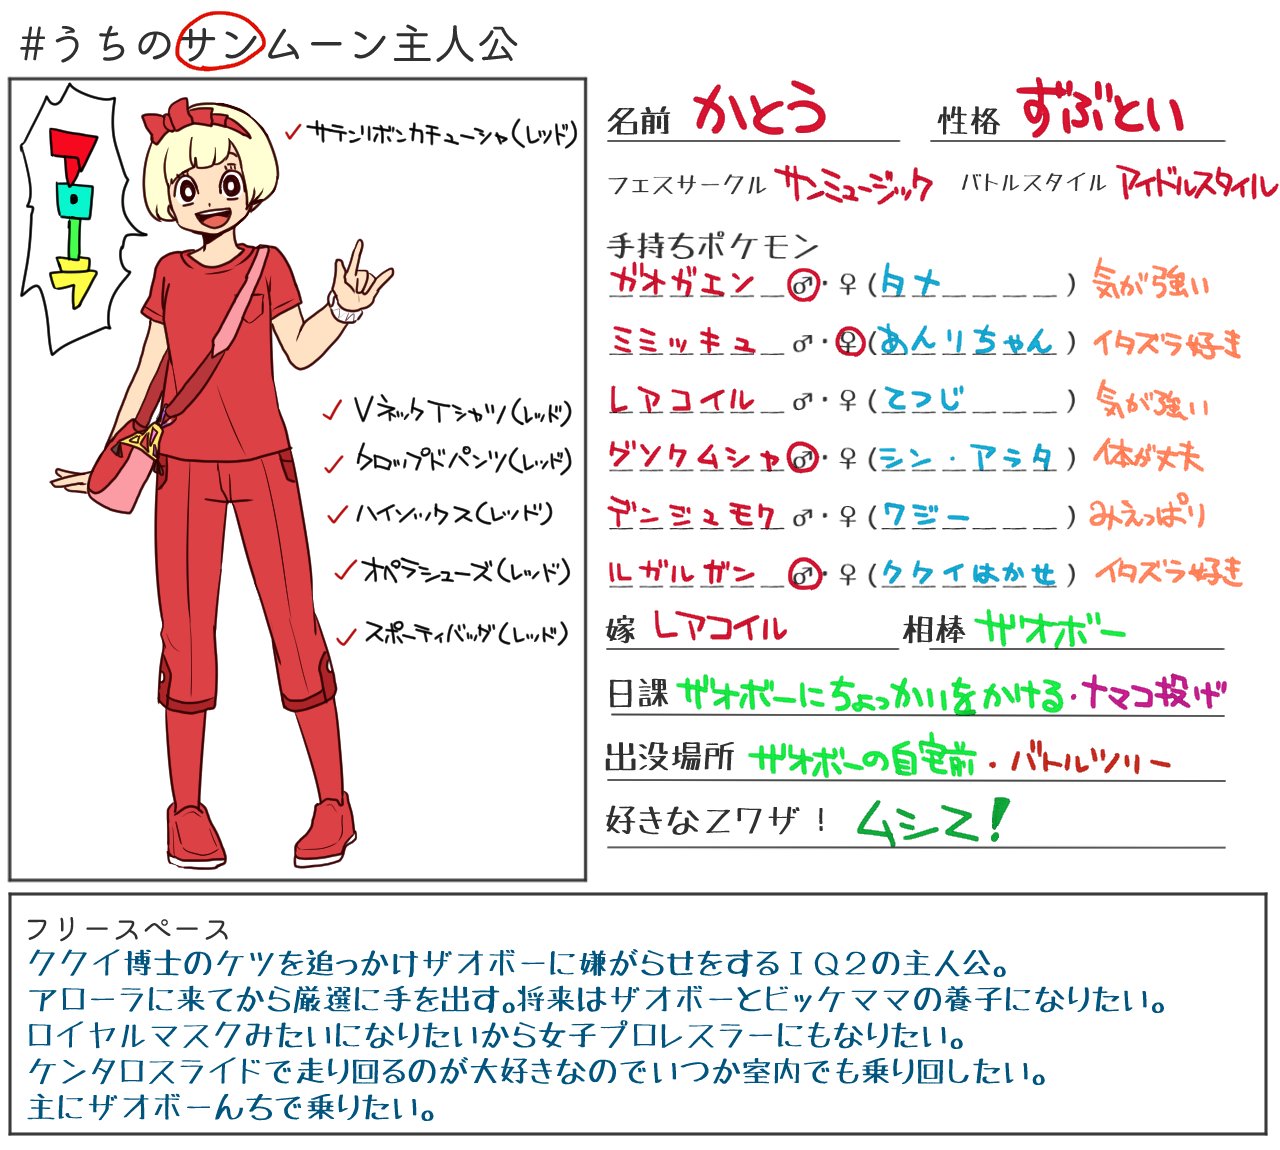 #うちのサンムーン主人公
アローラ
サテンリボンカチューシャ(レッド)
Vネックシャツ(レッド)
クロップドパンツ(レッド)
ハイソックス(レッド)
オペラシューズ(レッド)
スポーティバッグ(レッド)
名前 かとう 性格 ずぶとい
フェスサークル サンミュージック バトルスタイル アイドルスタイル
手持ちポケモン
ガオガエン ♂・♀(タナ) 気が強い
ミミッキュ ♂・♀(あんりちゃん) イタズラ好き
レアコイル ♂・♀(てつじ) 気が強い
グソクムシャ ♂・♀(シン・アラタ) 体が丈夫
デンジュモク ♂・♀(ワジー) みえっぱり
ルガルガン ♂・♀(ククイはかせ) イタズラ好き
嫁 レアコイル 相棒 ザオボー
日課 ザオボーにちょっかいをかける・ナマコ投げ
出没場所 ザオボーの自宅前・バトルツリー
好きなZワザ! ムシZ!
フリースペース
ククイ博士のケツを追っかけザオボーに嫌がらせをするIQ2の主人公。
アローラに来てから厳選に手を出す。将来はザオボーとビッケママの養子になりたい。
ロイヤルマスクみたいになりたいから女子プロレスラーにもなりたい。
ケンタロスライドで走り回るのが大好きなのでいつか室内でも乗り回したい。
主にザオボーんちで乗りたい。